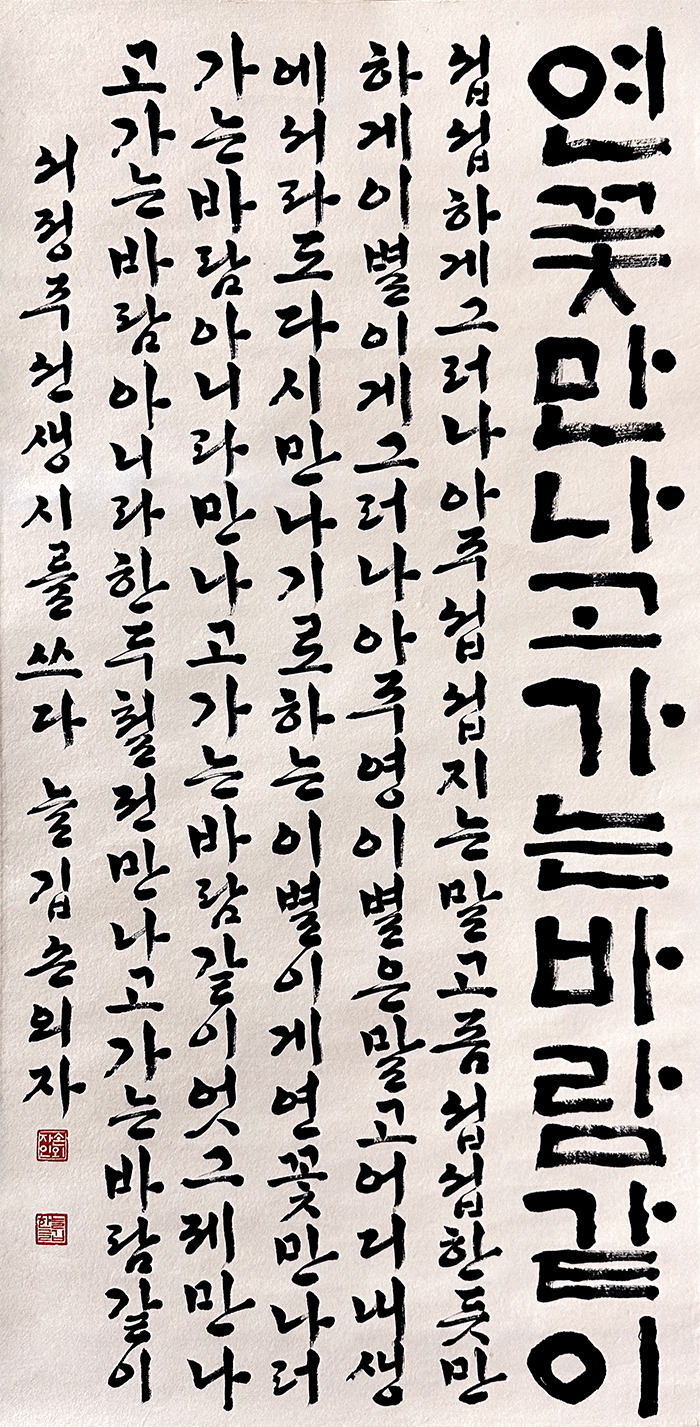 연꽃만나고가는바람같이
섭섭하게그러나아주섭섭지는말고좀섭섭한듯만
하게이별이게그러나아주영이별은말고어디내생
에서라도다시만나기로하는이별이게연꽃만나러
가는바람아니라만나고가는바람같이엇그제만나
고가는바람아니라한두철전만나고가는바람같이
서정주선생시를쓰다 늘깁손의자
손의자인